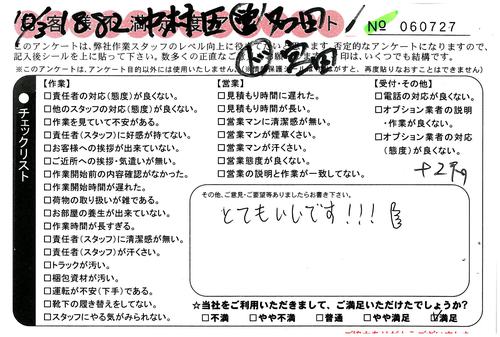 お客様満足度アンケート
№ 060727
10/3 1882 中村区 多田
宮田
このアンケートは、弊社作業スタッフのレベル向上に役
否定的なアンケートになりますので、
記入後シールを上に貼って下さい。数多くの正直なご意
印は、いくつでも結構です。
※このアンケートは、アンケート目的以外には使用いたしません
再度貼りなおすことはできません)
●チェックリスト
【作業】
□責任者の対応(態度)が良くない。
□他のスタッフの対応(態度)が良くない。
□作業を見ていて不安がある。
□責任者(スタッフ)に好感が持てない。
□お客様への挨拶が出来ていない。
□ご近所への挨拶・気遣いが無い。
□作業開始前の内容確認がなかった。
□作業開始時間が遅れた。
□荷物の取り扱いが雑である。
□お部屋の養生が出来ていない。
□作業時間が長すぎる。
□責任者(スタッフ)に清潔感が無い。
□責任者(スタッフ)が汗くさい。
□トラックが汚い。
□梱包資材が汚い。
□運転が不安(下手)である。
□靴下の履き替えをしてない。
□スタッフにやる気がみられない。
【営業】
□見積もり時間に遅れた。
□見積もり時間が長い。
□営業マンに清潔感が無い。
□営業マンが煙草くさい。
□営業マンが汗くさい。
□営業態度が良くない。
□営業の説明と作業が一致してない。
【受付・その他】
□電話の対応が良くない。
□オプション業者の説明
・作業が良くない。
□オプション業者の対応
(態度)が良くない。
その他、ご意見・ご要望等ありましたらお書き下さい。
とてもいいです!!!
☆当社をご利用いただきまして、ご満足いただけたでしょうか?
□不満 □やや不満 □普通 □やや満足 ☑満足